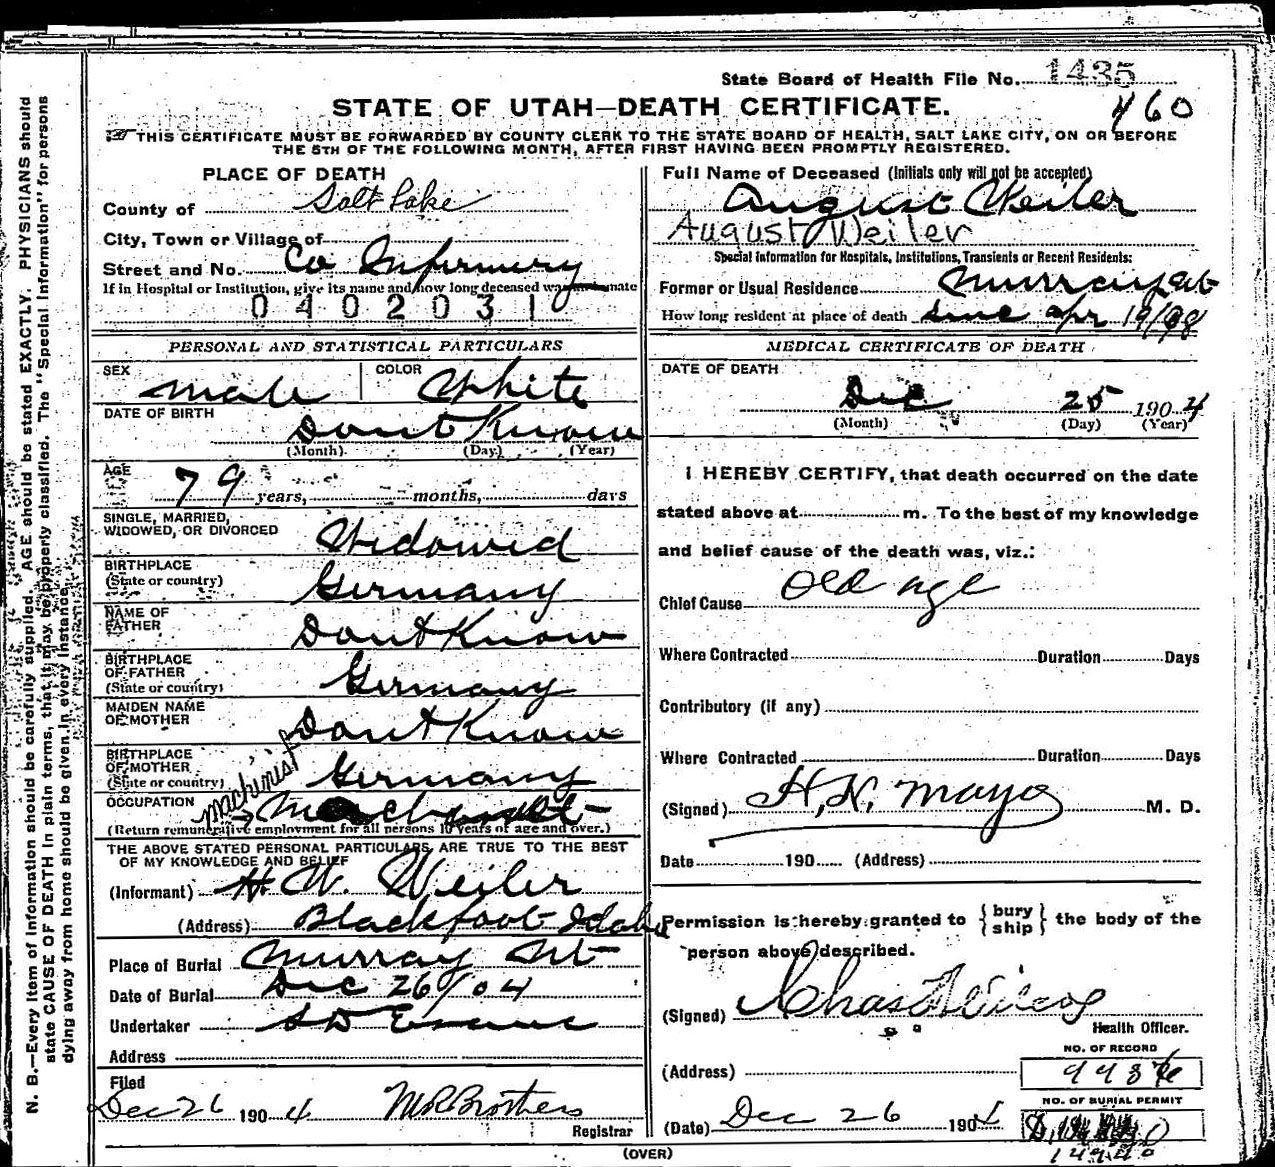 State Board of Health File No. 1435
STATE OF UTAH—DEATH CERTIFICATE.
460
THIS CERTIFICATE MUST BE FORWARDED BY COUNTY CLERK TO THE STATE BOARD OF HEALTH, SALT LAKE CITY, ON OR BEFORE
THE 5TH OF THE FOLLOWING MONTH, AFTER FIRST HAVING BEEN PROMPTLY REGISTERED.
PLACE OF DEATH
County of Salt Lake
City, Town or Village of
Street and No. Co Infirmery
If in Hospital or Institution, give its name and how long deceased was inmate
0402031
PERSONAL AND STATISTICAL PARTICULARS
SEX Male COLOR White
DATE OF BIRTH Dont Know
(Month) (Day) (Year)
AGE 79 years, months, days
SINGLE, MARRIED,
WIDOWED, OR DIVORCED Widowed
BIRTHPLACE
(State or country) Germany
NAME OF
FATHER Dont Know
BIRTHPLACE
OF FATHER
(State or country) Germany
MAIDEN NAME
OF MOTHER Dont Know
BIRTHPLACE
OF MOTHER
(State or country) Germany
OCCUPATION machinist
(Return remunerative employment for all persons 10 years of age and over.)
THE ABOVE STATED PERSONAL PARTICULARS ARE TRUE TO THE BEST
OF MY KNOWLEDGE AND BELIEF
(Informant) H. W. Weiler
(Address) Blackfoot Idaho
Place of Burial Murray Ut
Date of Burial Dec 26/04
Undertaker S D Evans
Address
Filed
Dec 26 1904 Brothers
Registrar
Full Name of Deceased (Initials only will not be accepted)
August Weiler
August Weiler
Special Information for Hospitals, Institutions, Transients or Recent Residents:
Former or Usual Residence Murray Ut
How long resident at place of death since apr 19/98
MEDICAL CERTIFICATE OF DEATH
DATE OF DEATH
Dec 25 1904
(Month) (Day) (Year)
I HEREBY CERTIFY, that death occurred on the date
stated above at m. To the best of my knowledge
and belief cause of the death was, viz.:
Chief Cause Old age
Where Contracted Duration Days
Contributory (if any)
Where Contracted Duration Days
(Signed) H. N. Mayo M. D.
Date 190 (Address)
Permission is hereby granted to {bury ship} the body of the
person above described.
(Signed) Chas Wilcox
Health Officer.
NO. OF RECORD
(Address)
NO. OF BURIAL PERMIT
(Date) Dec 26 1904
(OVER)
N. B.—Every item of information should be carefully supplied. AGE should be stated EXACTLY. PHYSICIANS should
state CAUSE OF DEATH in plain terms, that it may be properly classified. The "Special Information" for persons
dying away from home should be given in every instance.